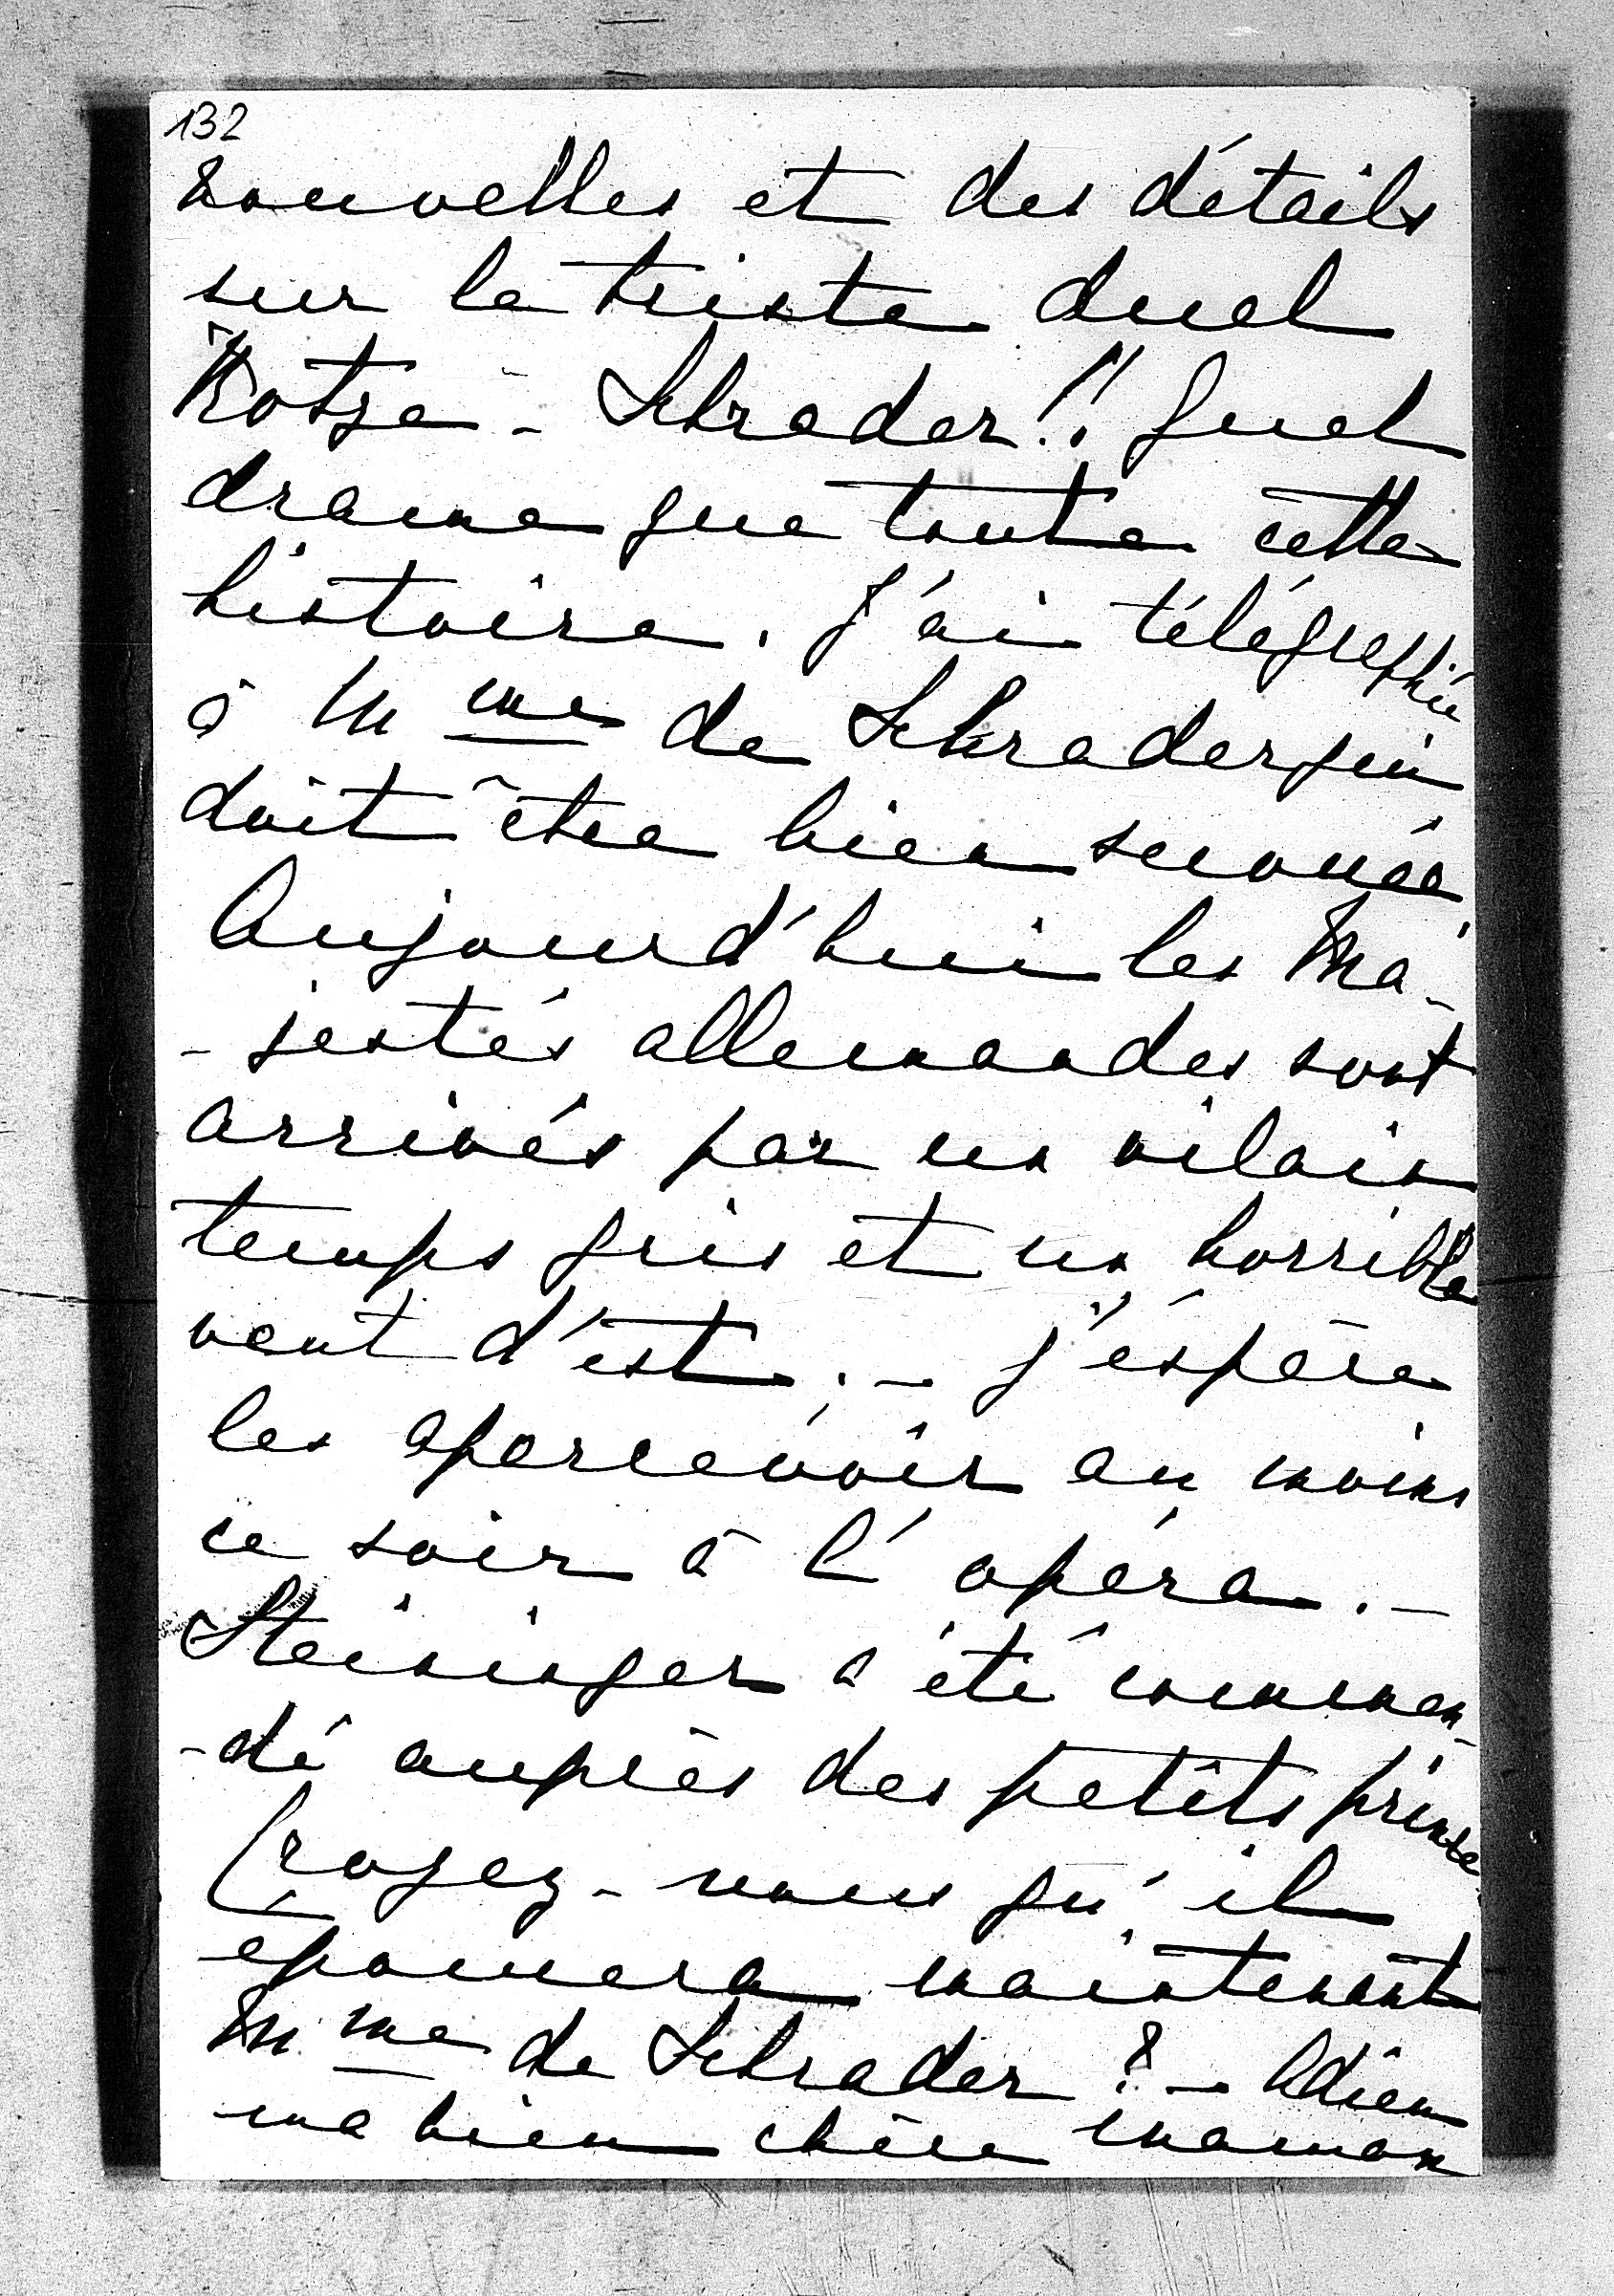 132
nouvelles et des détails
sur le triste duel
Kotze - Schrader!! Quel
drame que toute cette
histoire. J'ai télégraphié
à Mme de Schrader qui
doit être bien secouée.
Aujourd'hui les Ma-
-jestés allemandes sont
arrivés par un vilain
temps gris et un horrible
vent d'est. - J'éspère
les apercevoir au moins
ce soir à l'opéra. -
Steininger a été comman-
-dé auprès des petits princes.
Croyez-vous qu'il
epousera maintenant
Mme de Schrader? - Adieu
ma bien chère maman